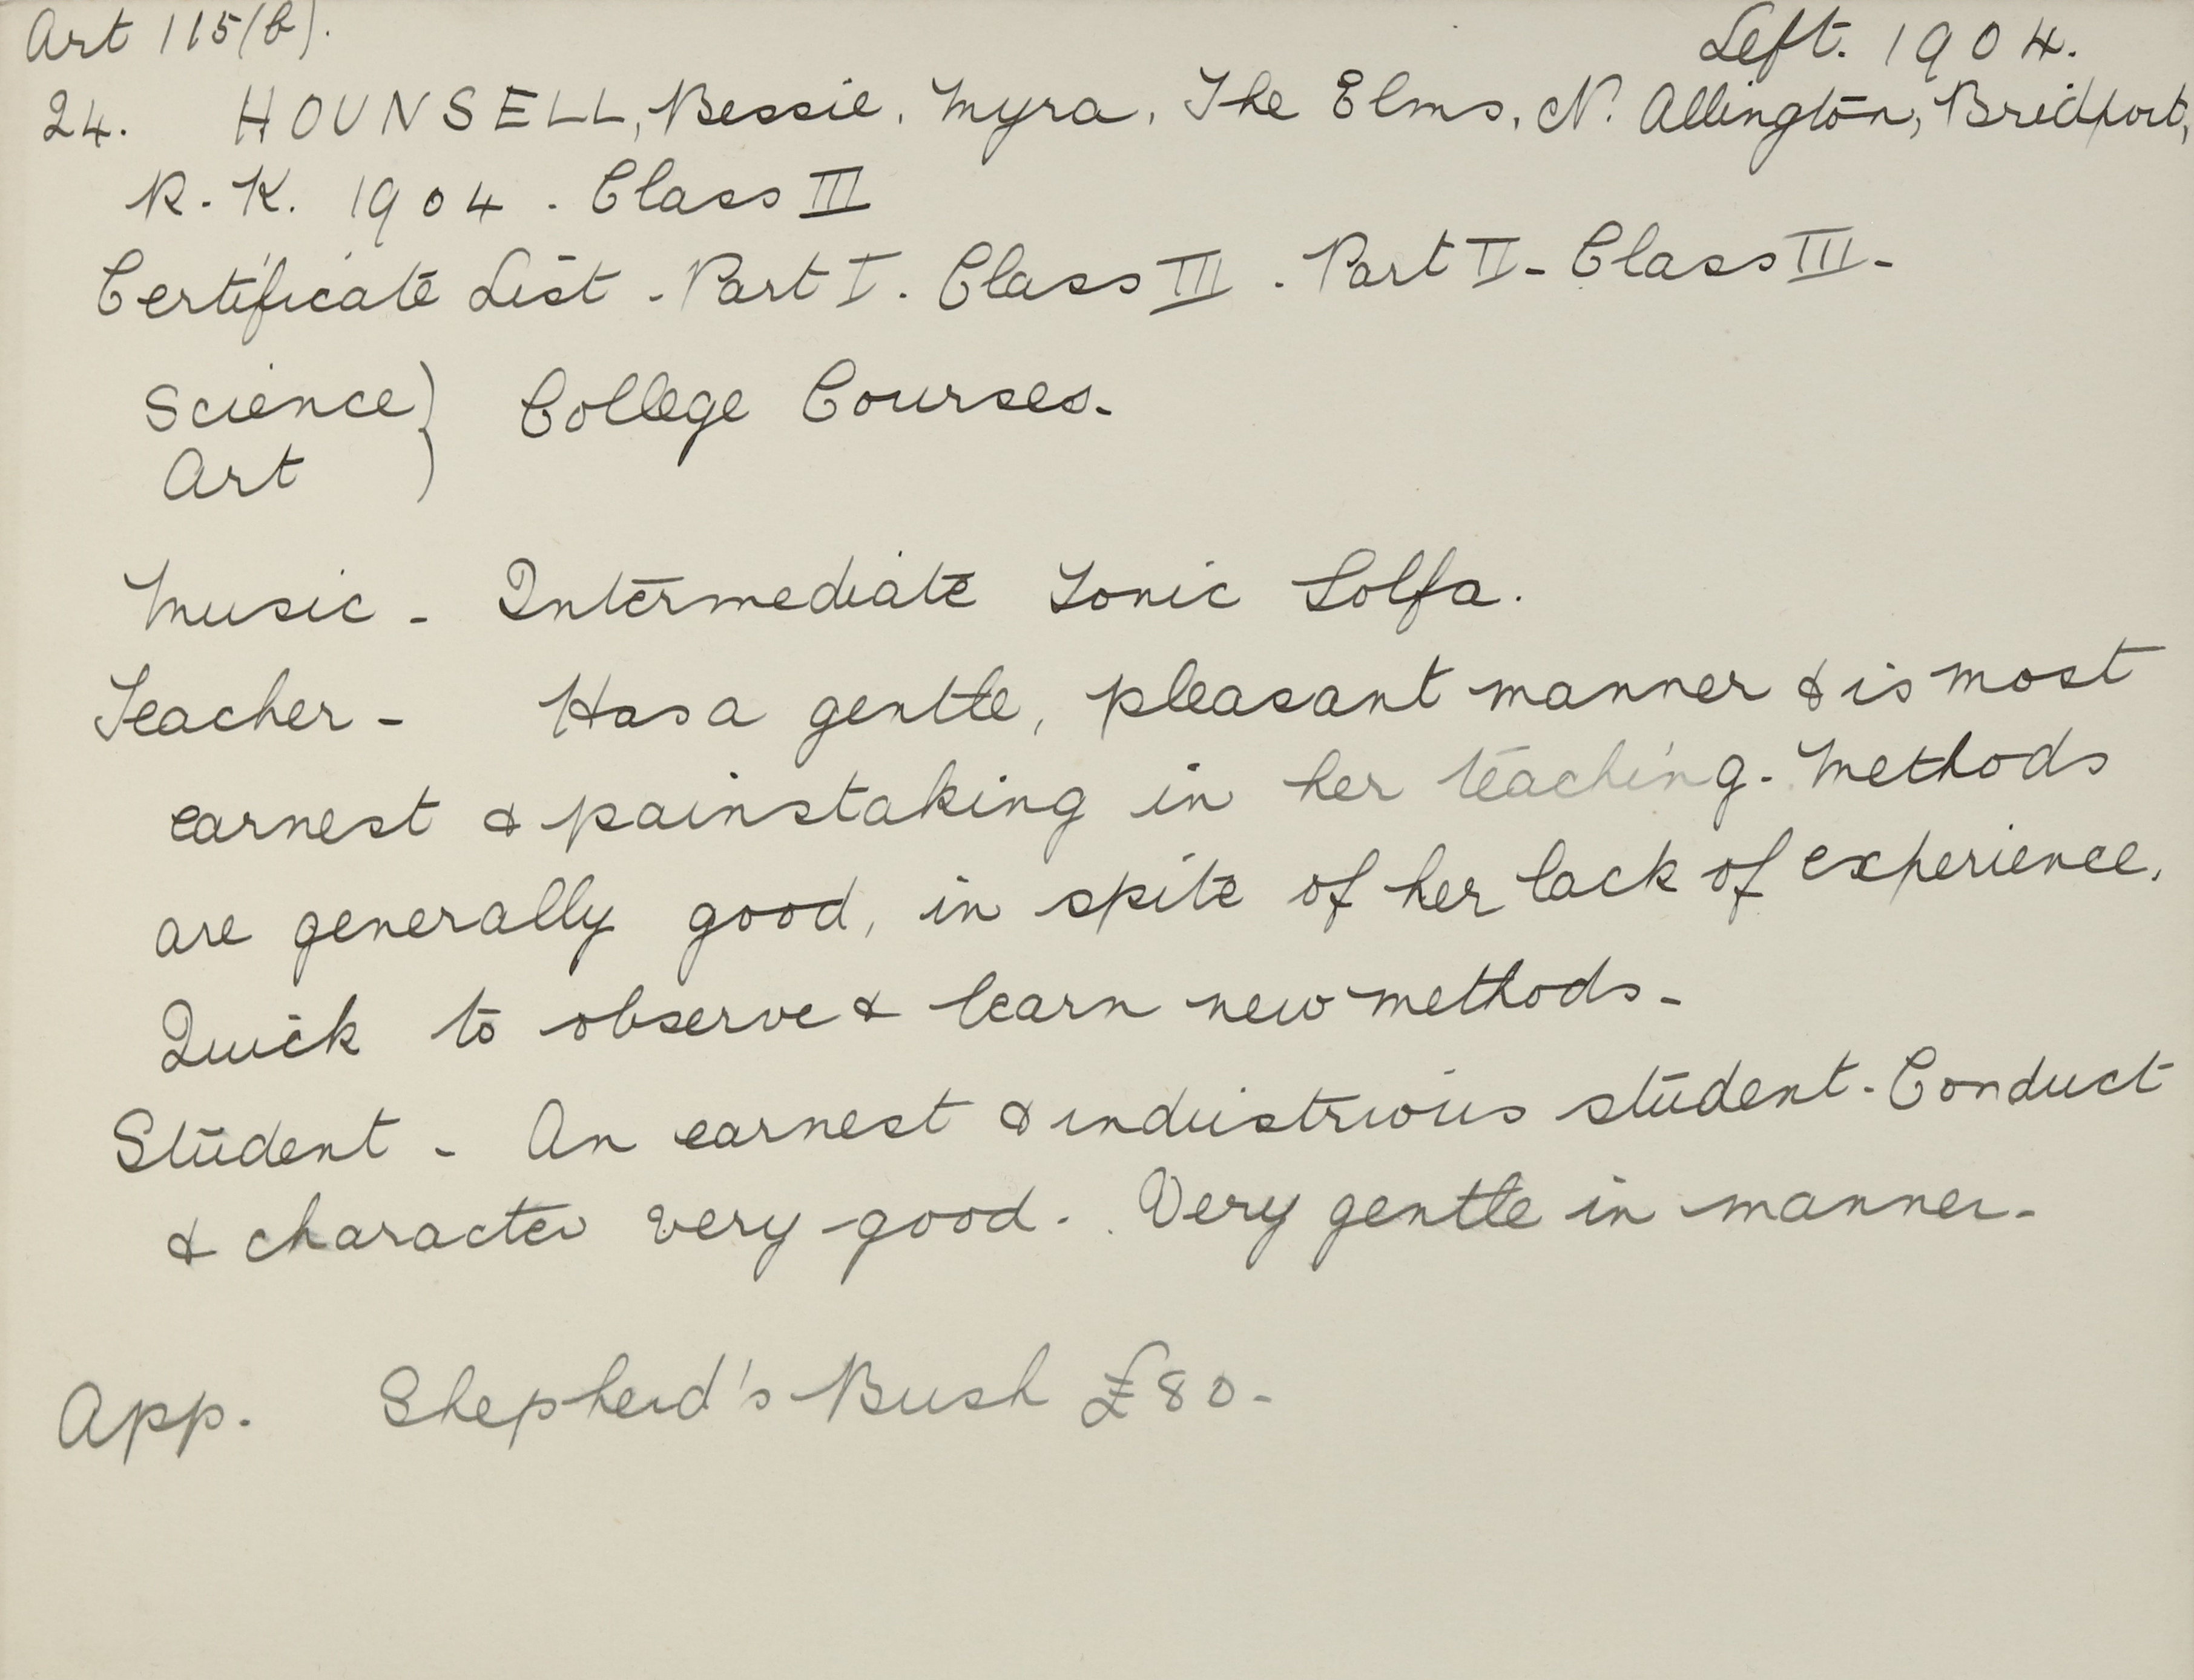 Art 115(b).
Left. 1904.
24. HOUNSELL, Bessie. Myra. The Elms. N. Allington, Bridport,
R. K. 1904. Class III
Certificate List - Part I. Class III. Part II - Class III -
Science } College Courses.
Art
Music - Intermediate Tonic Solfa.
Teacher - Has a gentle, pleasant manner & is most
earnest & painstaking in her teaching. Methods
are generally good, in spite of her lack of experience.
Quick to observe & learn new methods -
Student - An earnest & industrious student. Conduct
& character very good. Very gentle in manner -
App. Shepherd's Bush £80 -